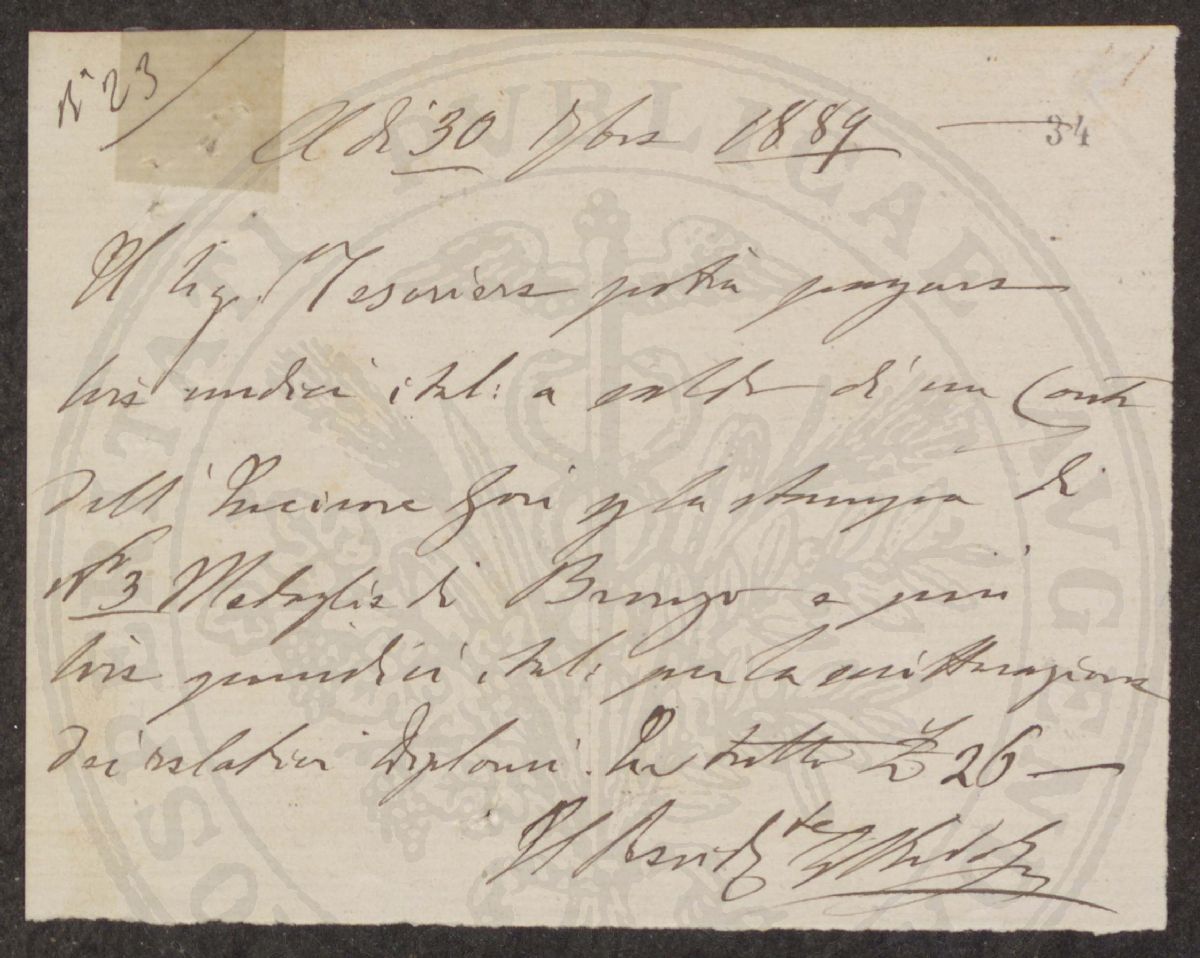 N° 23
A dì 30 1889
34
Il Sig. Tesoriere potrà pagare
lire undici ital: a saldo di un Conto
dell' Incisore Gori p la stampa di
N° 3 Medaglie di Bronzo e più
lire quindici ital: per la scritturazione
dei relativi Diplomi. In tutto £ 26 —
Il Presid.te
PROSPERITATI PUBLICAE AVGENDAE